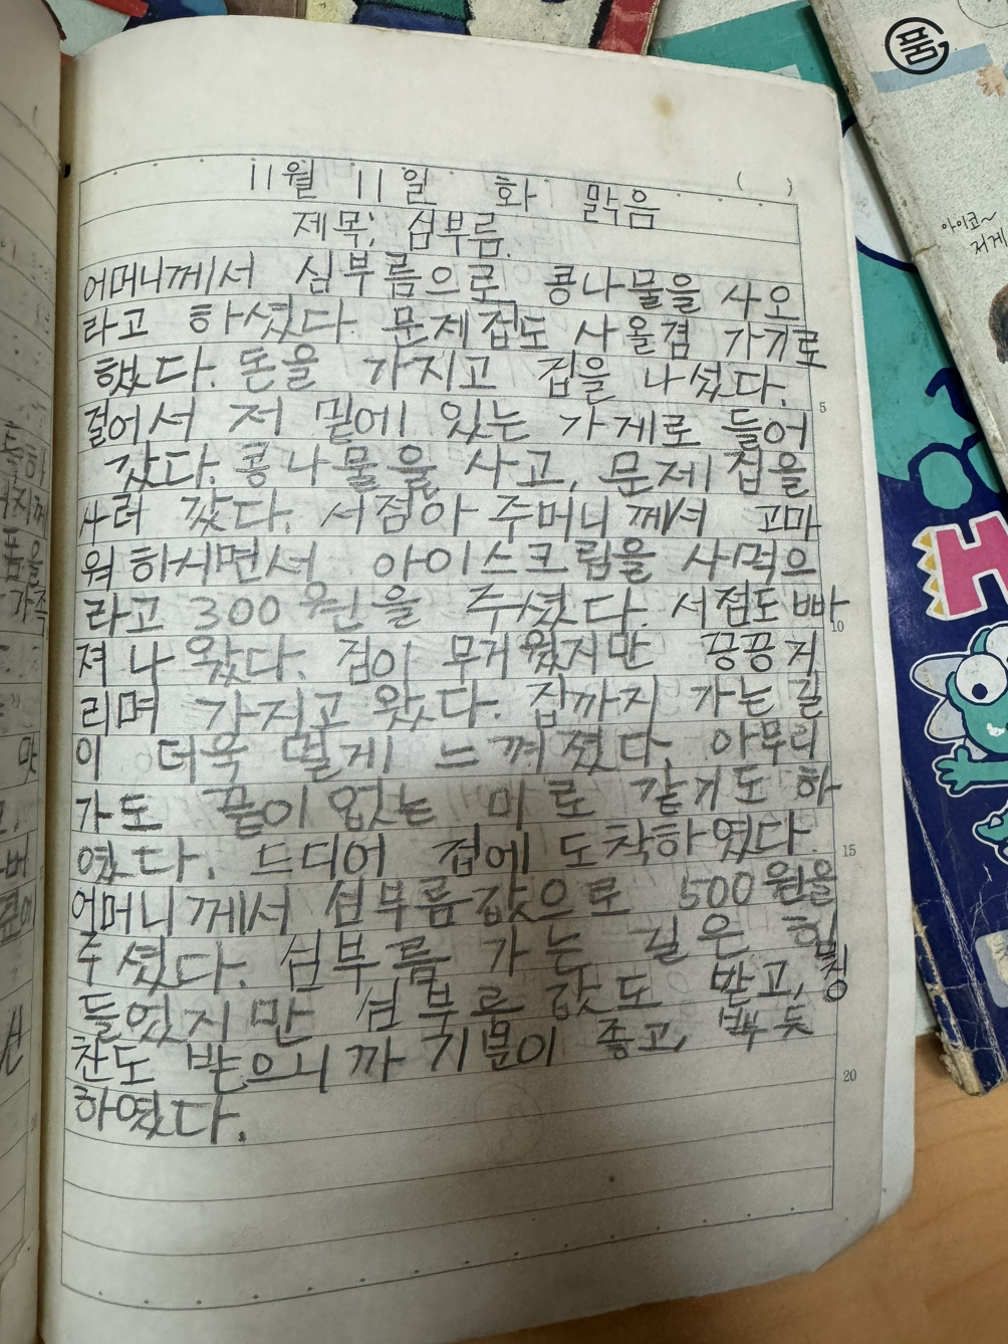 11월 11일 화 맑음
제목; 심부름.
어머니께서 심부름으로 콩나물을 사오
라고 하셨다. 문제집도 사올겸 가기로
했다. 돈을 가지고 집을 나섰다.
걸어서 저 밑에 있는 가게로 들어
갔다. 콩나물을 사고, 문제집을
사러 갔다. 서점아주머니께서 고마
워하시면서 아이스크림을 사먹으
라고 300원을 주셨다. 서점도 빠
져나왔다. 짐이 무거웠지만 끙끙거
리며 가지고 왔다. 집까지 가는 길
이 더욱 멀게 느껴졌다. 아무리
가도 끝이 없는 미로 같기도 하
였다. 드디어 집에 도착하였다.
어머니께서 심부름값으로 500원을
주셨다. 심부름 가는 길은 힘
들었지만 심부름값도 받고, 칭
찬도 받으니까 기분이 좋고, 뿌듯
하였다.
5
10
15
20
품
아이코~
저게
H